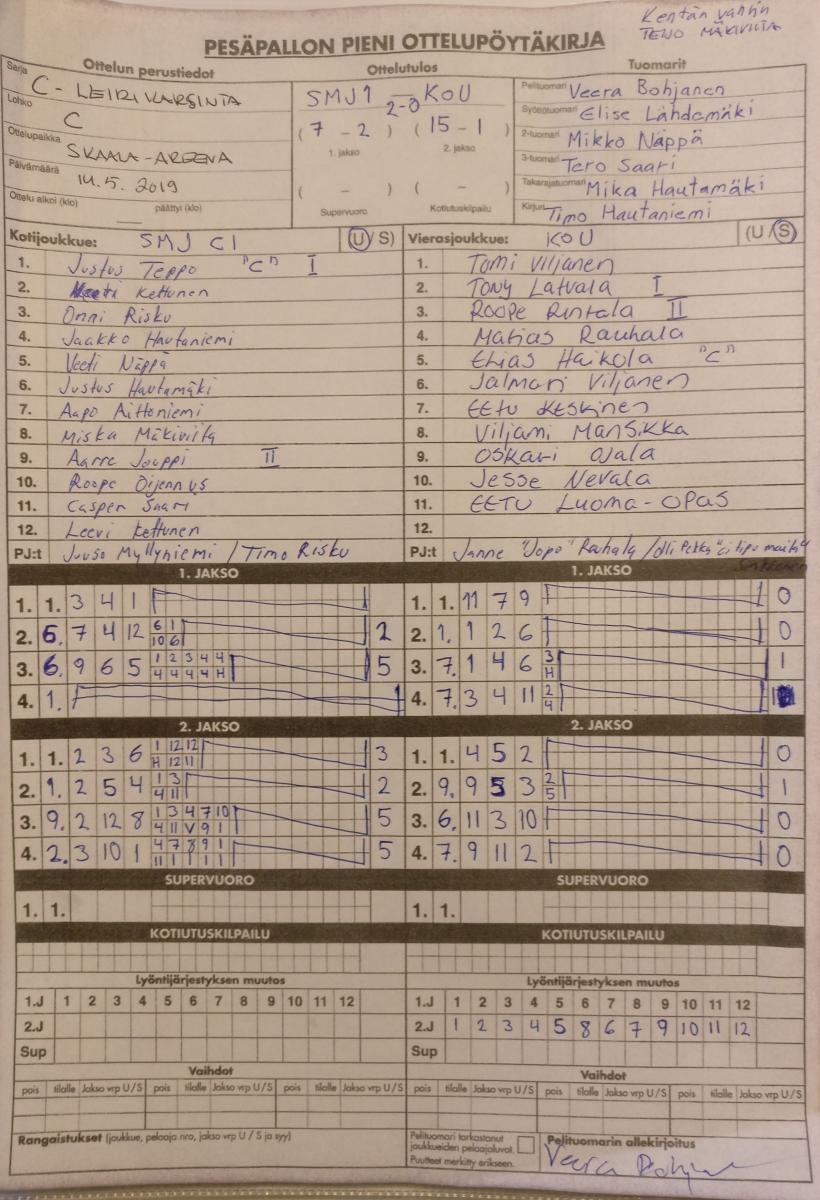 Kentän vanhin
TEIJO MÄKIVIITA
PESÄPALLON PIENI OTTELUPÖYTÄKIRJA
Ottelun perustiedot
Sarja C - LEIRIKARSINTA
Lohko C
Ottelupaikka SKAALA-AREENA
Päivämäärä 14.5. 2019
Ottelu alkoi (klo) päättyi (klo)
Ottelutulos
SMJ1 – KOU
2-0
( 7 - 2 ) ( 15 - 1 )
1. jakso 2. jakso
( - ) ( - )
Supervuoro Kotiutuskilpailu
Tuomarit
Pelituomari Veera Bohjanen
Syöttötuomari Elise Lähdemäki
2-tuomari Mikko Näppä
3-tuomari Tero Saari
Takarajatuomari Mika Hautamäki
Kirjuri Timo Hautaniemi
Kotijoukkue: SMJ C1 (U/S)
1. Justus Teppo "C" I
2. Kettunen
3. Onni Risku
4. Jaakko Hautaniemi
5. Veeti Näppä
6. Justus Hautamäki
7. Aapo Aittoniemi
8. Miska Mäkiviita
9. Aarre Jouppi II
10. Roope Öijennus
11. Casper Saari
12. Leevi Kettunen
PJ:t Juuso Myllyniemi / Timo Risku
Vierasjoukkue: KOU (U/S)
1. Tomi Viljanen
2. Tony Latvala I
3. Roope Rintala II
4. Matias Rauhala
5. Elias Haikola "C"
6. Jalmari Viljanen
7. EETU KESKINEN
8. Viljami Mansikka
9. OSKARI OJALA
10. JESSE NEVALA
11. EETU LUOMA-OPAS
12.
PJ:t Janne "Jopo" Rauhala / Olli Pekka
1. JAKSO
1. 1. 3 4 1
2. 6. 7 4 12 6 1 2
10 6
3. 6. 9 6 5 1 2 3 4 4 5
4 4 4 4 H
4. 1.
2. JAKSO
1. 1. 2 3 6 1 12 12 3
H 12 11
2. 1. 2 5 4 1 3 2
4 11
3. 9. 2 12 8 1 3 4 7 10 5
4 11 V 9 1
4. 2. 3 10 1 4 7 8 9 1 5
11 1 1 1 1
SUPERVUORO
1. 1.
KOTIUTUSKILPAILU
1. JAKSO
1. 1. 11 7 9 0
2. 1. 1 2 6 0
3. 7. 1 4 6 3 1
H
4. 7. 3 4 11 2 1
4
2. JAKSO
1. 1. 4 5 2 0
2. 9. 9 5 3 2 1
5
3. 6. 11 3 10 0
4. 7. 9 11 2 0
SUPERVUORO
1. 1.
KOTIUTUSKILPAILU
Lyöntijärjestyksen muutos
1.J 1 2 3 4 5 6 7 8 9 10 11 12
2.J
Sup
Vaihdot
pois tilalle Jakso vrp U/S pois tilalle Jakso vrp U/S pois tilalle Jakso vrp U/S
Rangaistukset (joukkue, pelaaja nro, jakso vrp U / S ja syy)
Lyöntijärjestyksen muutos
1.J 1 2 3 4 5 6 7 8 9 10 11 12
2.J 1 2 3 4 5 8 6 7 9 10 11 12
Sup
Vaihdot
pois tilalle Jakso vrp U/S pois tilalle Jakso vrp U/S pois tilalle Jakso vrp U/S
Pelituomari tarkastanut
joukkueiden pelaajaluvat.
Puutteet merkitty erikseen.
Pelituomarin allekirjoitus
Veera Bohjanen